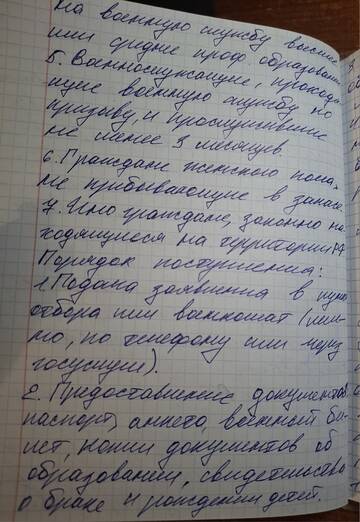 на военную службу высшее
или средне проф. образование
5. Военнослужащие, проходя-
щие военную службу по
призыву, и прослужившие
не менее 3 месяцев.
6. Граждане женского пола,
не пребывающие в запасе
7. Ино граждане, законно на-
ходящиеся на территории
Порядок поступления:
1. Подача заявления в пункт
отбора или военкомат (лич-
но, по телефону или через
госуслуги).
2. Предоставление документов
паспорт, анкета, военный би-
лет, копии документов об
образовании, свидетельства
о браке и рождении детей.